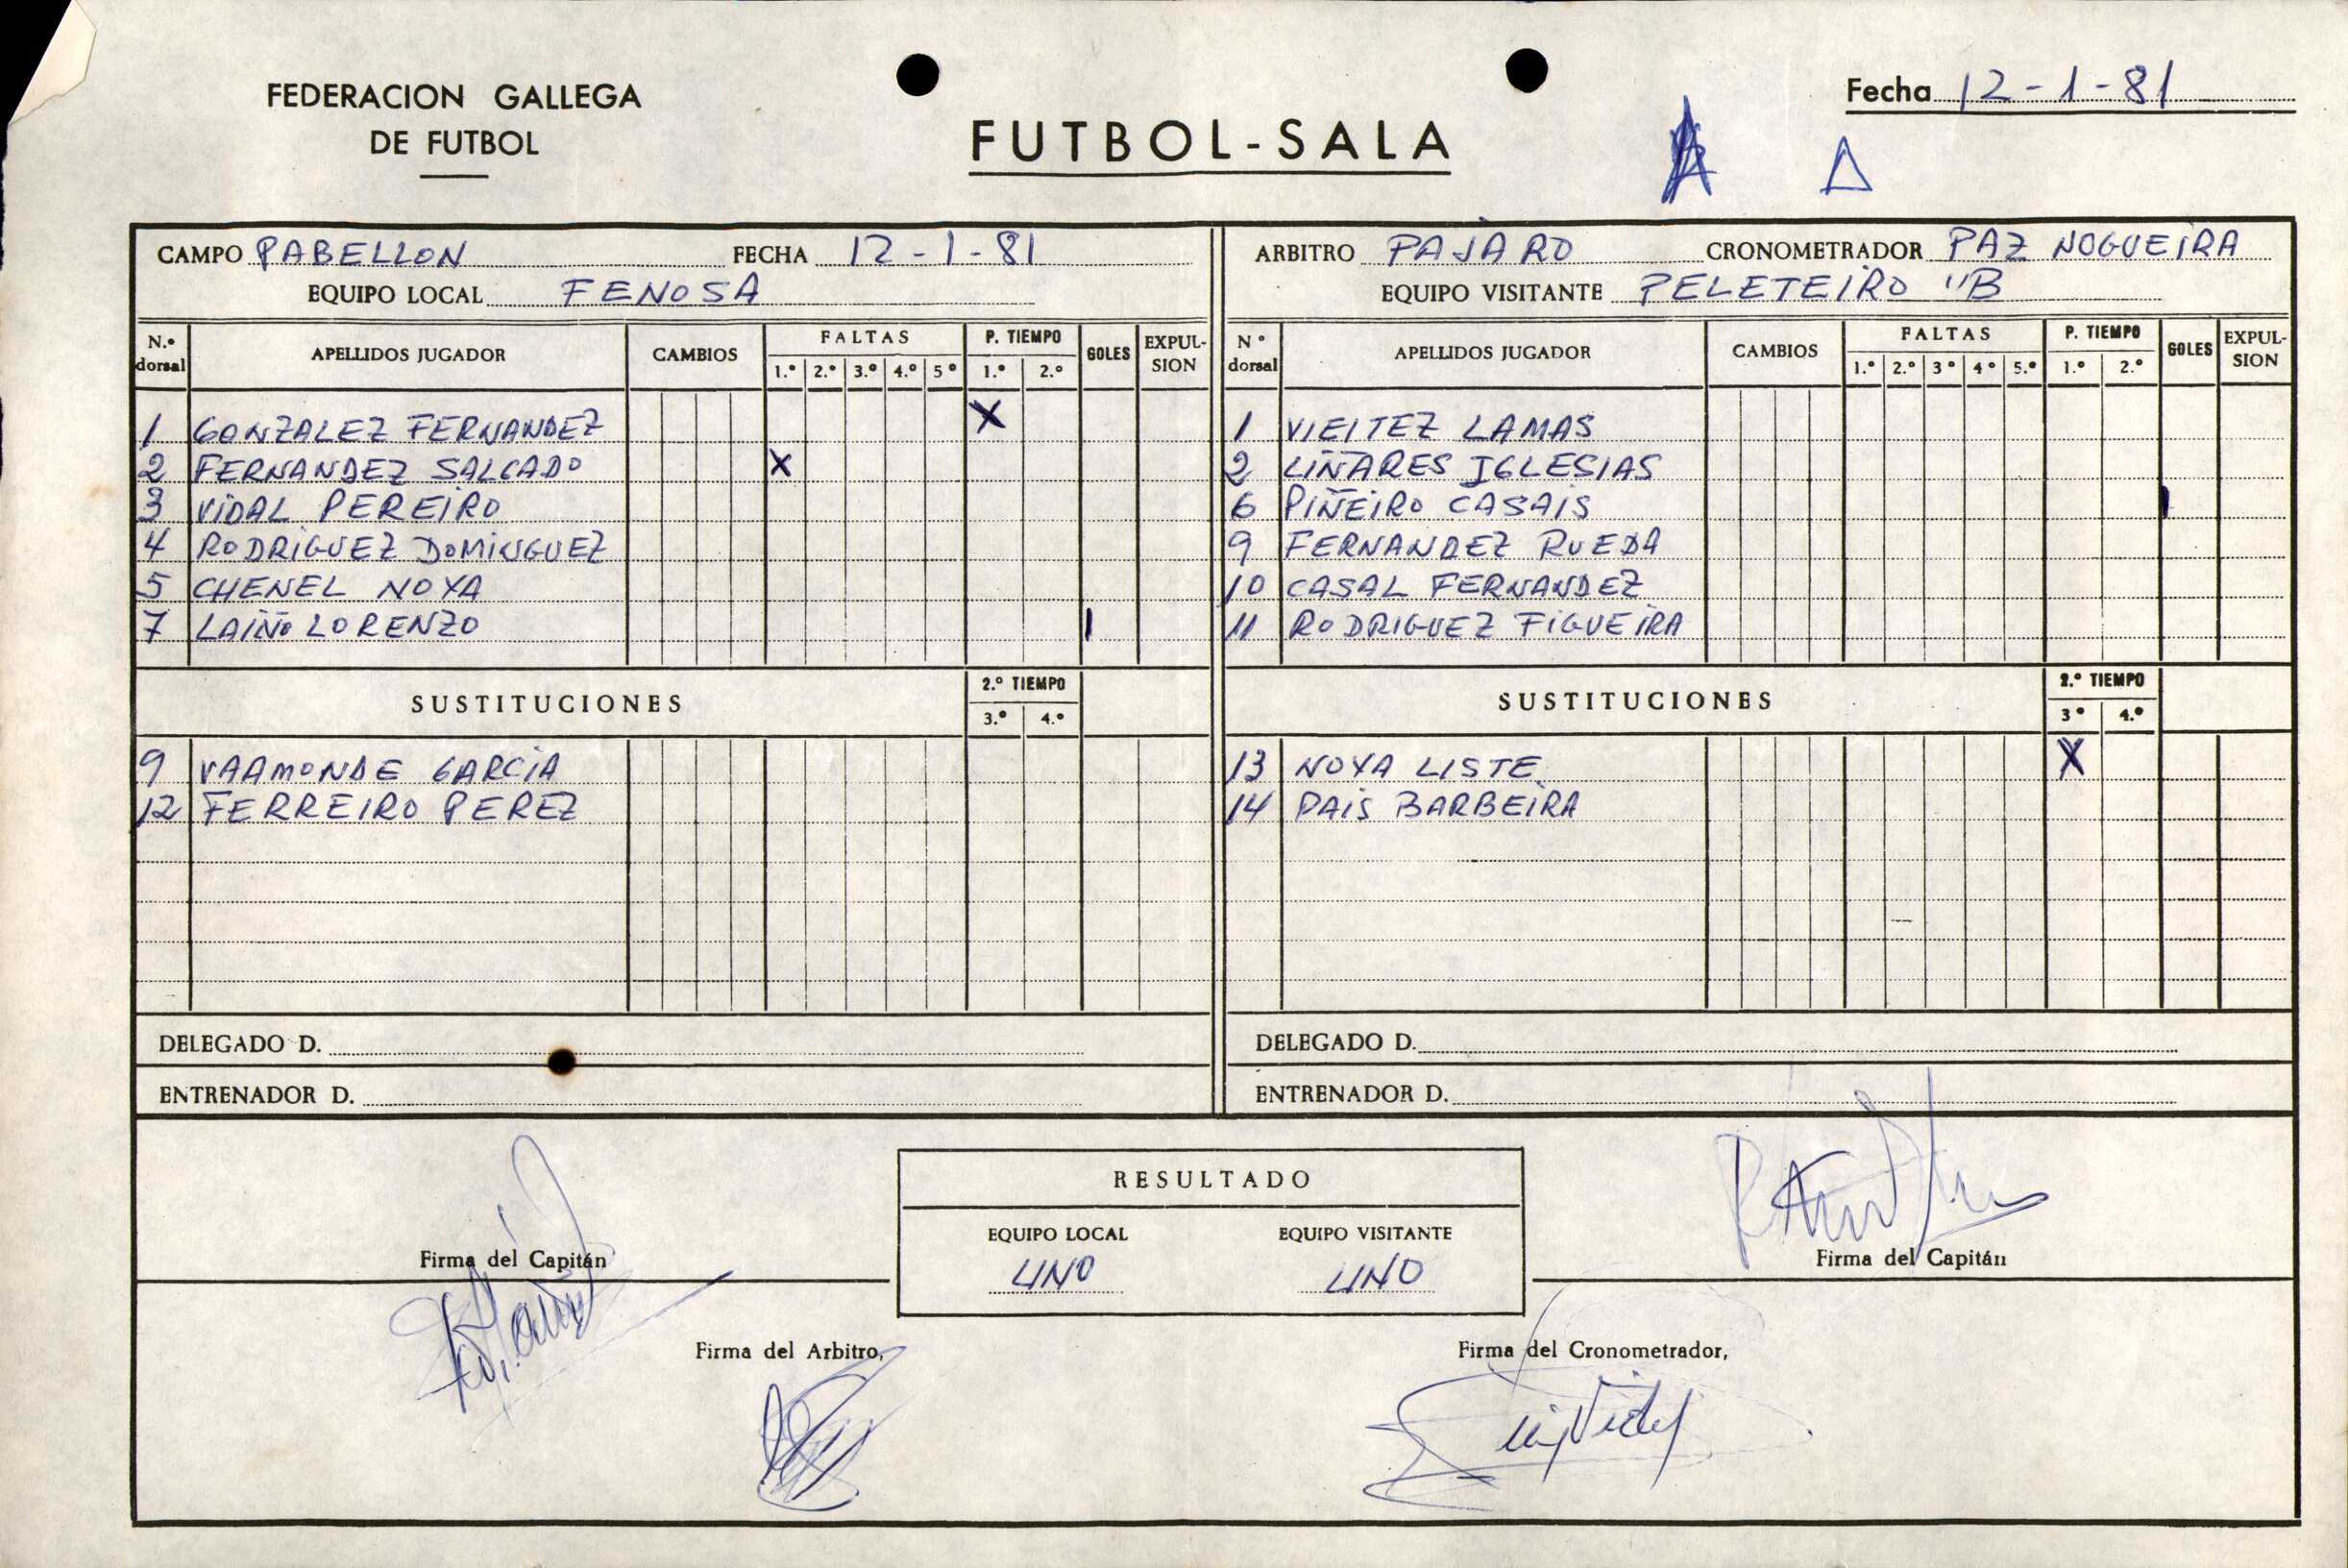 FEDERACION GALLEGA
DE FUTBOL
FUTBOL-SALA
Fecha 12-1-81
A
CAMPO PABELLON FECHA 12-1-81
EQUIPO LOCAL FENOSA
N.º dorsal APELLIDOS JUGADOR CAMBIOS FALTAS 1.º 2.º 3.º 4.º 5º P. TIEMPO 1.º 2.º GOLES EXPUL-SION
1 GONZALEZ FERNANDEZ X
2 FERNANDEZ SALGADO X
3 VIDAL PEREIRO
4 RODRIGUEZ DOMINGUEZ
5 CHENEL NOYA
7 LAIÑO LORENZO 1
SUSTITUCIONES 2.º TIEMPO 3.º 4.º
9 VAAMONDE GARCIA
12 FERREIRO PEREZ
DELEGADO D.
ENTRENADOR D.
ARBITRO PAJARO CRONOMETRADOR PAZ NOGUEIRA
EQUIPO VISITANTE PELETEIRO "B
N º dorsal APELLIDOS JUGADOR CAMBIOS FALTAS 1.º 2.º 3º 4º 5.º P. TIEMPO 1.º 2.º GOLES EXPUL-SION
1 VIEITEZ LAMAS
2 LIÑARES IGLESIAS
6 PIÑEIRO CASAIS 1
9 FERNANDEZ RUEDA
10 CASAL FERNANDEZ
11 RODRIGUEZ FIGUEIRA
SUSTITUCIONES 2.º TIEMPO 3º 4.º
13 NOYA LISTE X
14 PAIS BARBEIRA
DELEGADO D.
ENTRENADOR D.
RESULTADO
EQUIPO LOCAL EQUIPO VISITANTE
UNO UNO
Firma del Capitán
Firma del Capitán
Firma del Arbitro,
Firma del Cronometrador,